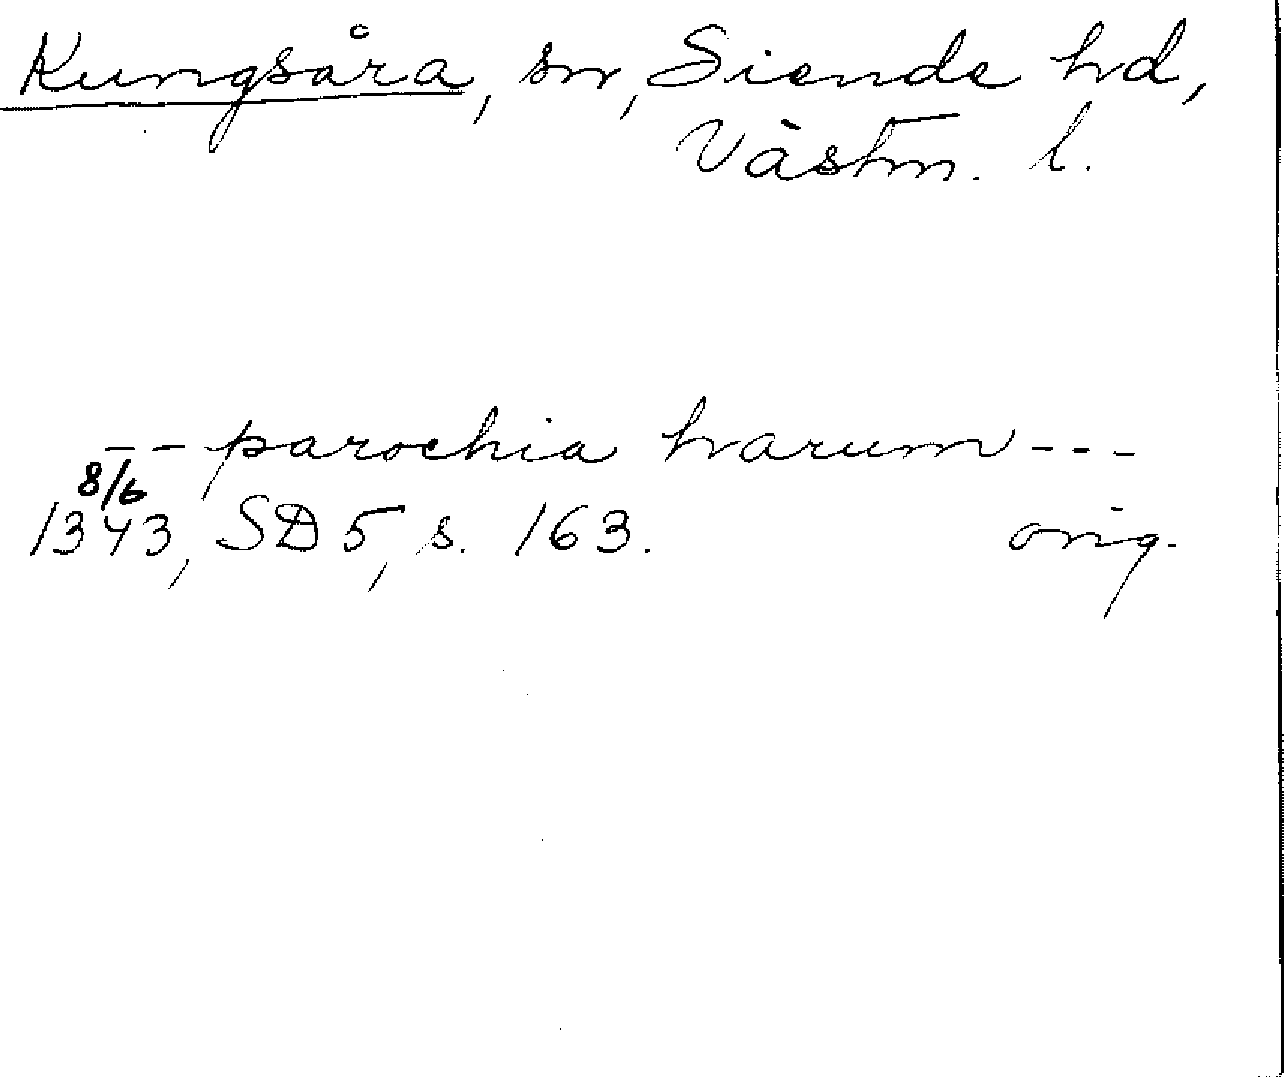 Kungsåra, sn, Siende hd,
Västm. l.
--- parochia hrarum ---
8/6
1343, SD 5, s. 163. orig.